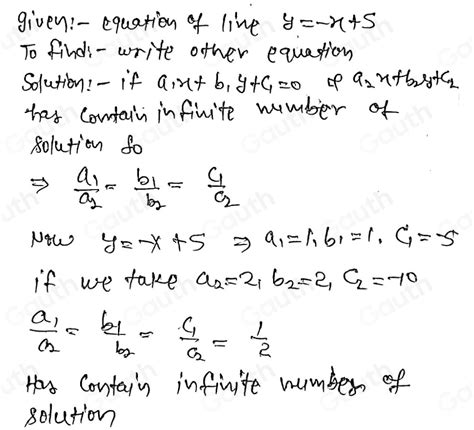 given:- equation of line y=-x+5
To find:- write other equation
Solution:- if a₁x+b₁y+c₁=0 & a₂x+b₂y+c₂
has contain infinite number of
solution so
⇒ a₁/a₂ = b₁/b₂ = c₁/c₂
Now y=-x+5 ⇒ a₁=1, b₁=1, c₁=-5
if we take a₂=2, b₂=2, c₂=-10
a₁/a₂ = b₁/b₂ = c₁/c₂ = 1/2
Has contain infinite number of
solution